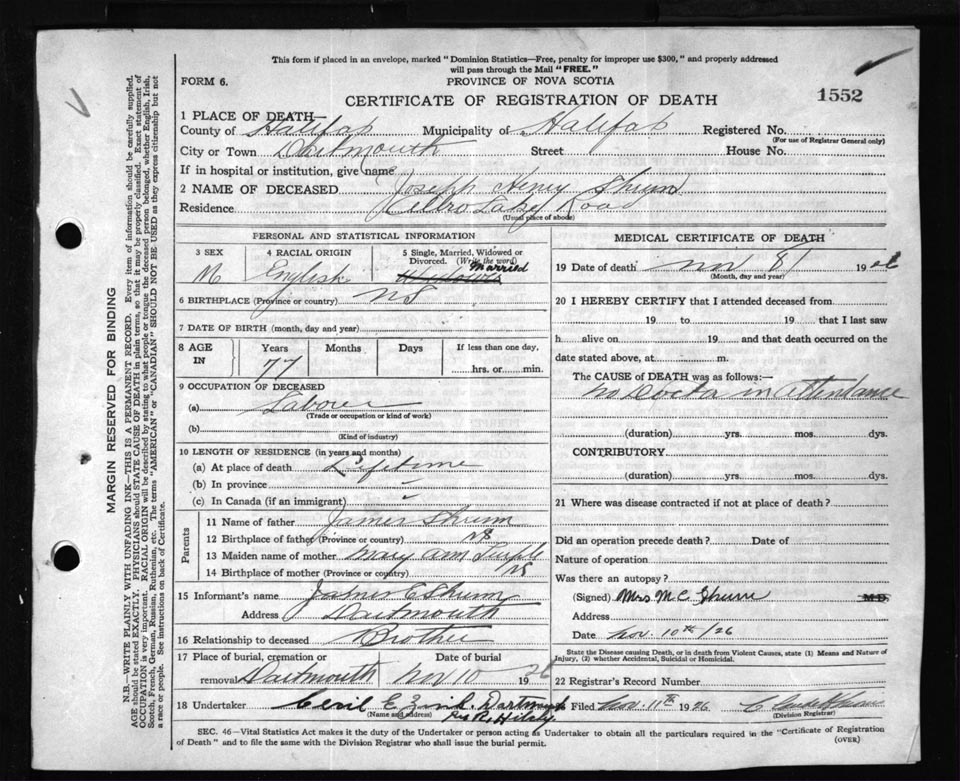 This form if placed in an envelope, marked "Dominion Statistics—Free, penalty for improper use $300," and properly addressed
will pass through the Mail "FREE."
FORM 6.
PROVINCE OF NOVA SCOTIA
CERTIFICATE OF REGISTRATION OF DEATH
1552
1 PLACE OF DEATH
County of Halifax Municipality of Halifax Registered No.
(For use of Registrar General only)
City or Town Dartmouth Street House No.
If in hospital or institution, give name
2 NAME OF DECEASED Joseph Henry Shrum
Residence Road
(Usual place of abode)
PERSONAL AND STATISTICAL INFORMATION
3 SEX M
4 RACIAL ORIGIN English
5 Single, Married, Widowed or
Divorced. (Write the word)
Married
6 BIRTHPLACE (Province or country) NS
7 DATE OF BIRTH (month, day and year)
8 AGE IN Years Months Days If less than one day,
77 hrs. or min.
9 OCCUPATION OF DECEASED
(a) Laborer
(Trade or occupation or kind of work)
(b)
(Kind of industry)
10 LENGTH OF RESIDENCE (in years and months)
(a) At place of death Lifetime
(b) In province
(c) In Canada (if an immigrant)
Parents
11 Name of father James Shrum
12 Birthplace of father (Province or country) NS
13 Maiden name of mother Mary Ann
14 Birthplace of mother (Province or country) NS
15 Informant's name James C Shrum
Address Dartmouth
16 Relationship to deceased Brother
17 Place of burial, cremation or Date of burial
removal Dartmouth Nov 10 1926
18 Undertaker Cecil E. Zink Dartmouth
(Name and address)
MEDICAL CERTIFICATE OF DEATH
19 Date of death Nov 8 19
(Month, day and year)
20 I HEREBY CERTIFY that I attended deceased from
19 to 19 that I last saw
h alive on 19 and that death occurred on the
date stated above, at m.
The CAUSE OF DEATH was as follows:—
No Doctor in attendance
(duration) yrs. mos. dys.
CONTRIBUTORY
(duration) yrs. mos. dys.
21 Where was disease contracted if not at place of death?
Did an operation precede death? Date of
Nature of operation
Was there an autopsy?
(Signed) Mrs M C Shrum M.D.
Address
Date Nov. 10th/26
State the Disease causing Death, or in death from Violent Causes, state (1) Means and Nature of
Injury, (2) whether Accidental, Suicidal or Homicidal.
22 Registrar's Record Number
Filed Nov. 11th 1926
(Division Registrar)
SEC. 46—Vital Statistics Act makes it the duty of the Undertaker or person acting as Undertaker to obtain all the particulars required in the "Certificate of Registration
of Death" and to file the same with the Division Registrar who shall issue the burial permit.
(OVER)
MARGIN RESERVED FOR BINDING
N.B.—WRITE PLAINLY WITH UNFADING INK—THIS IS A PERMANENT RECORD. Every item of information should be carefully supplied.
AGE should be stated EXACTLY. PHYSICIANS should STATE CAUSE OF DEATH in plain terms, so that it may be properly classified. Exact statement of
OCCUPATION is very important. RACIAL ORIGIN will be described by stating to what people or tongue the deceased person belonged, whether English, Irish,
Scotch, French, German, Russian, Ruthenian, etc. The terms "AMERICAN" or "CANADIAN" SHOULD NOT BE USED as they express citizenship but not
a race or people. See instructions on back of Certificate.